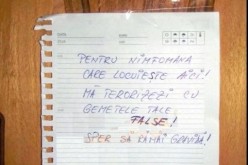 PENTRU NIMFOMANA
CARE LOCUIEȘTE AICI!
MĂ TERORIZEZI CU
GEMETELE TALE
FALSE!
SPER SĂ RĂMÂI GRAVIDĂ!